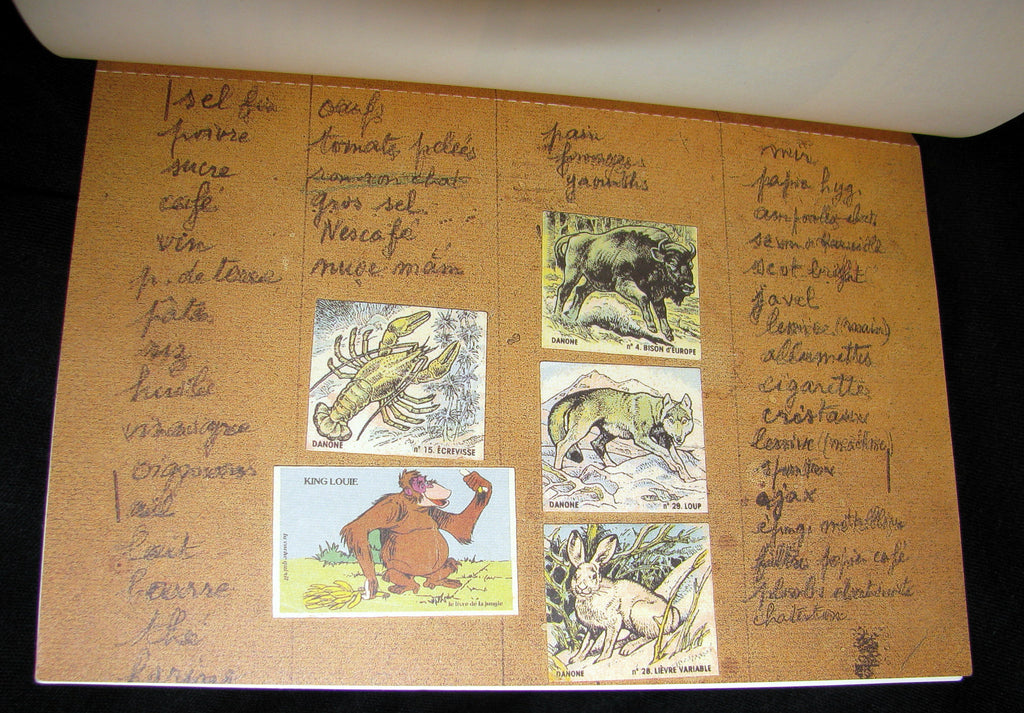 sel fin
poivre
sucre
café
vin
p. de terre
pâtes
riz
huile
vinaigre
oignons
ail
lait
beurre
thé
farine
oeufs
tomate pelées
ron ron chat
gros sel
Nescafé
nuoc mâm
DANONE n° 15. ÉCREVISSE
KING LOUIE
la vache qui rit
le livre de la jungle
pain
fromages
yaourths
DANONE n° 4. BISON d'EUROPE
DANONE n° 29. LOUP
DANONE n° 28. LIÈVRE VARIABLE
mir
papier hyg.
ampoules elect.
scot bright
javel
lessive (main)
allumettes
cigarette
cristaux
lessive (machine)
ajax
filtres papier café
chaterton